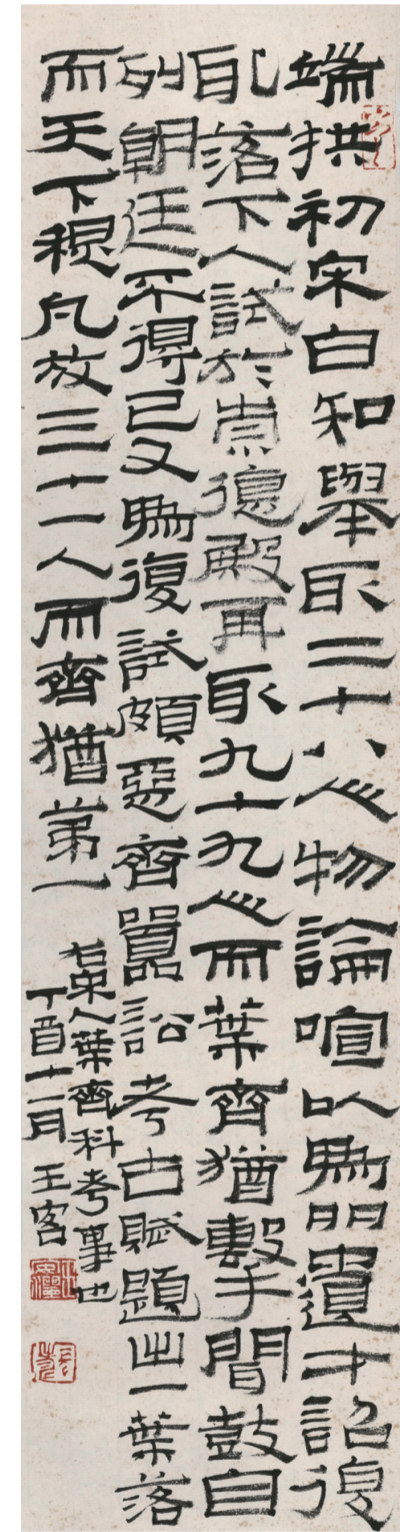 端拱初宋白知舉取二十八人物論喧以爲多遺才詔復
取落下人試於崇德殿再取九十九人而葉齊猶擊間鼓自
列朝廷不得已又爲復試頗惡齊囂訟考古賦題出一葉落
而天下穐凡放三十一人而齊猶第一
右宋人葉齊科考事也
丁酉十二月 王客